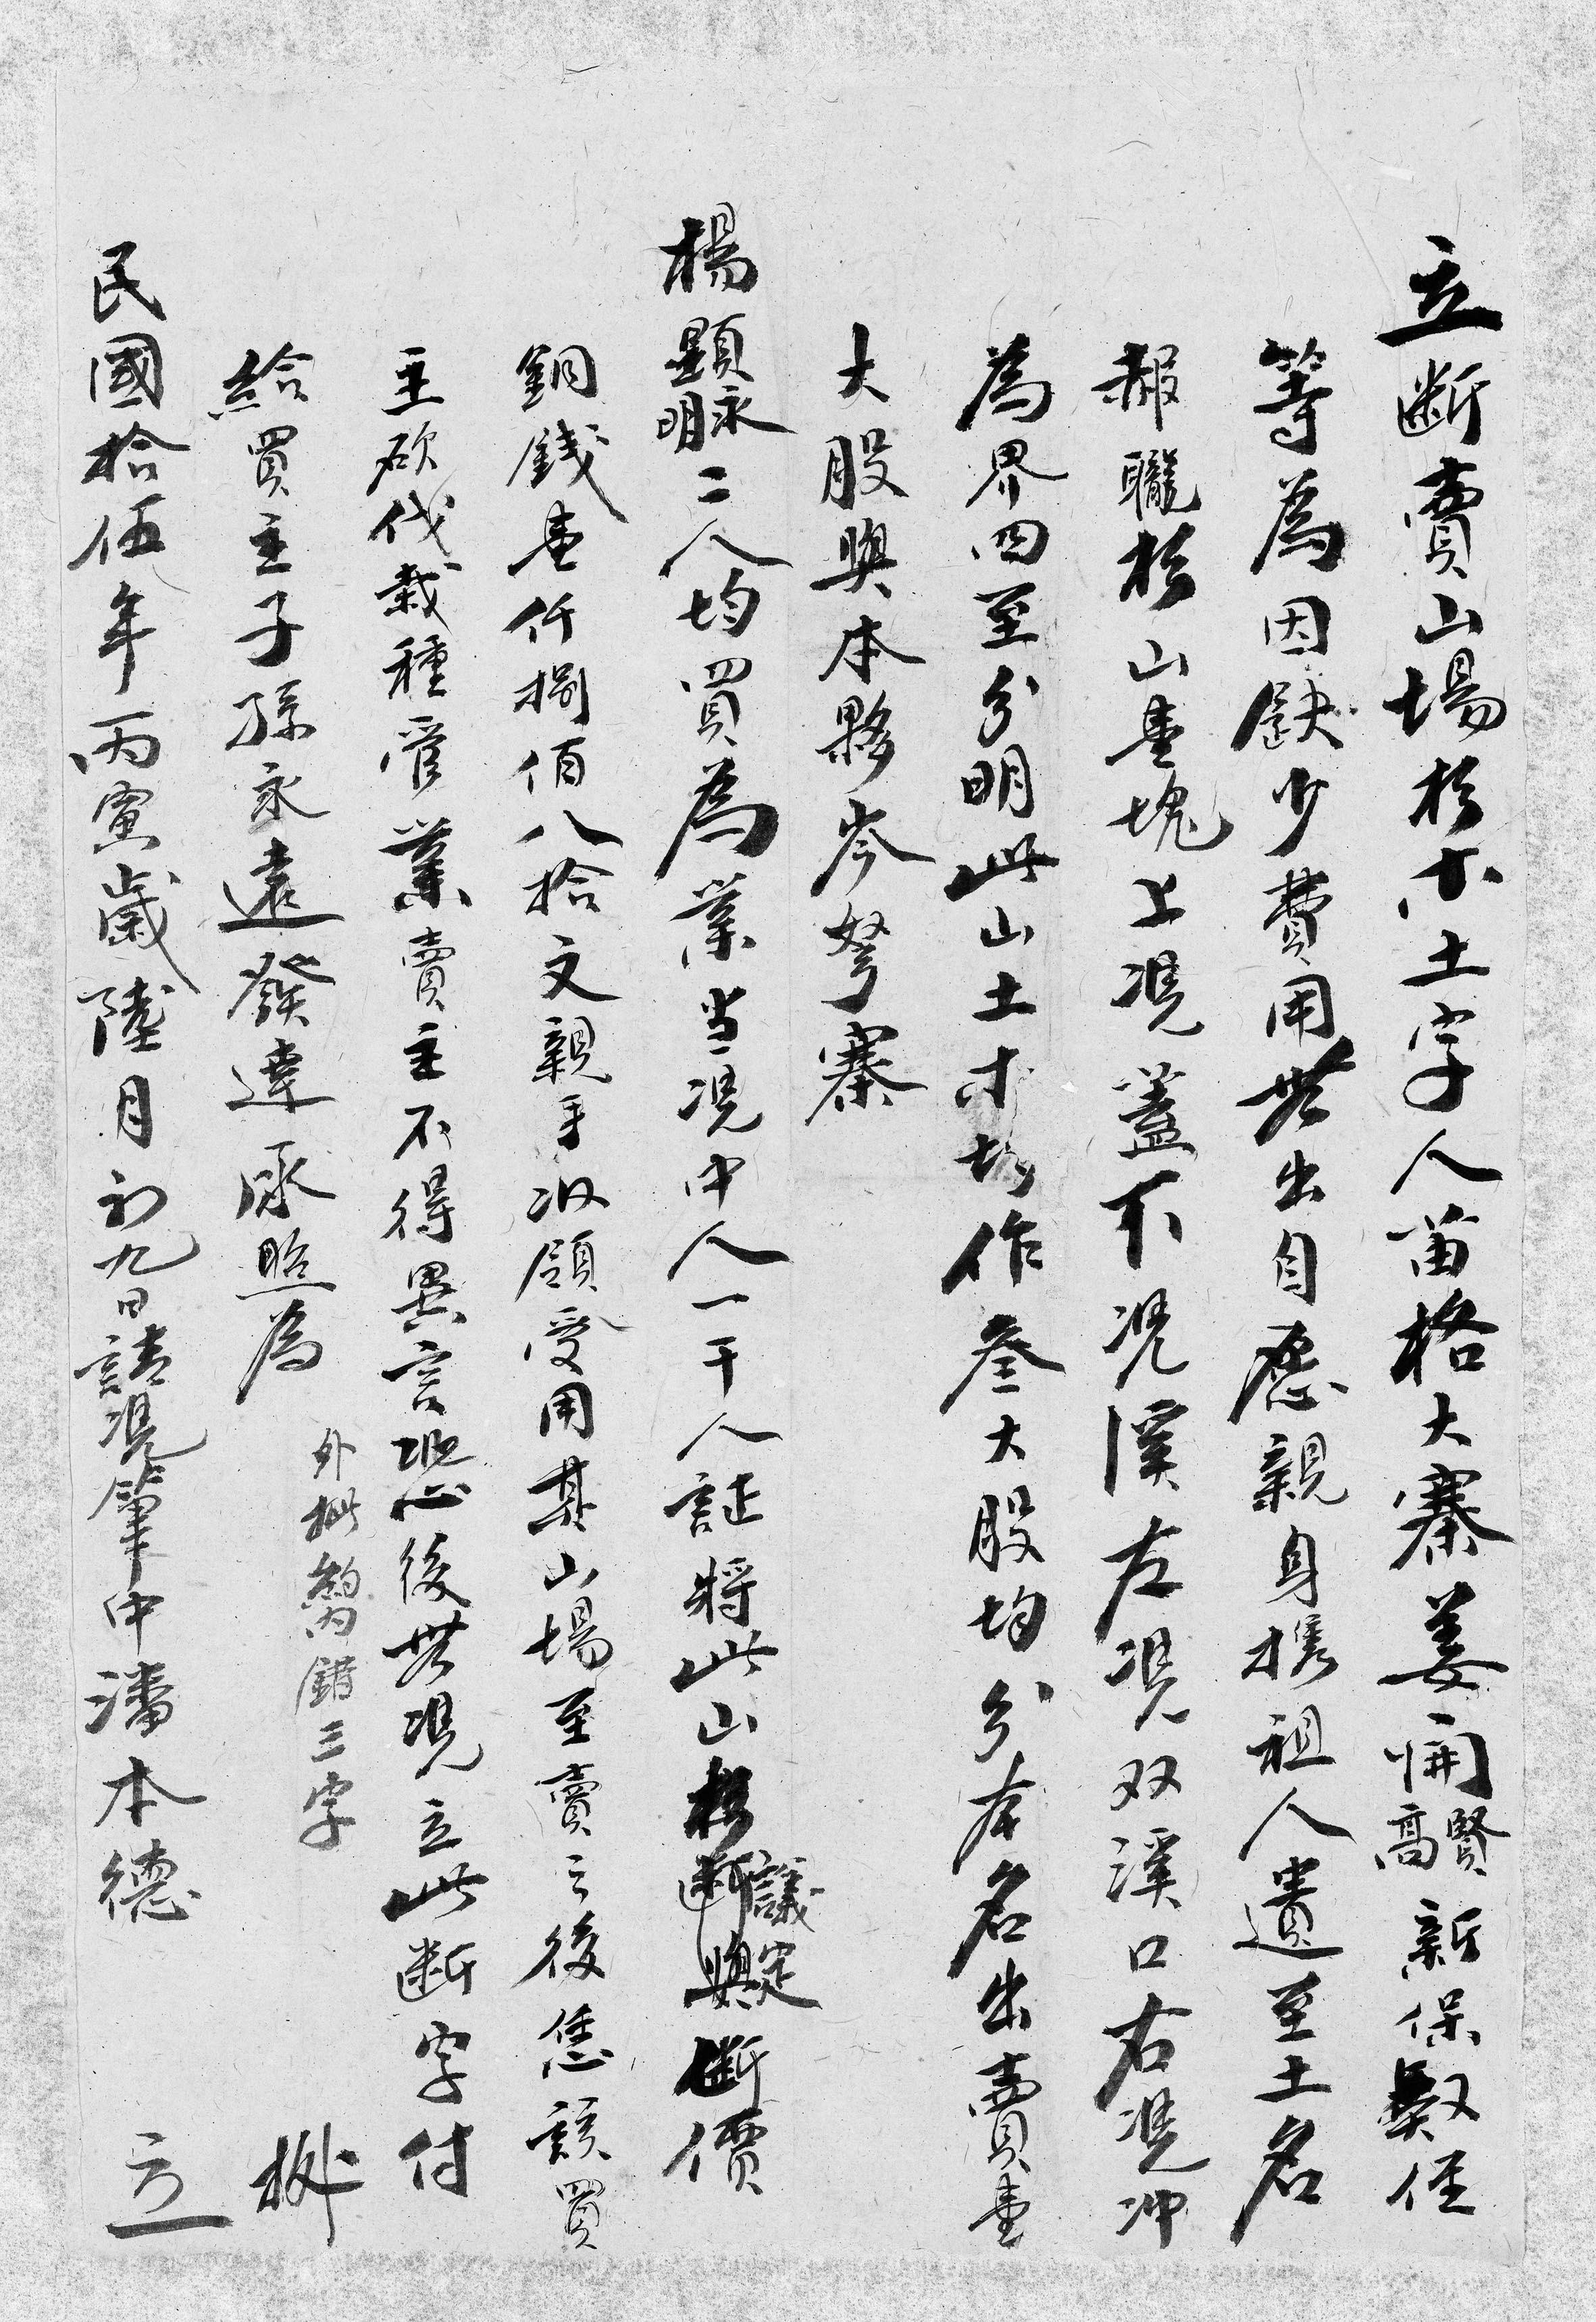 立断賣山場杉木土字人苗格大寨姜開賢高新保発侄
等為因缺少費用無出自愿親身携祖人遺至土名
報矓杉山壹塊上凴盖下凴溪左凴双溪口右凴冲
為界四至分明此山土木均作叁大股均分本名出賣壹
大股與本夥岑孥寨
楊顕永明二人均買為業当凴中人一干人証將此山杉断與議定断價
銅錢壹仟捌佰八拾文親手收領受用其山塲至賣之後恁該買
主砍伐栽種管業賣主不得異言恐後無凴立此断字付
給買主子孫永遠發達承照為
外批約内錯三字
民國拾伍年丙寅歲陸月初九日請凴筆中潘本德 立